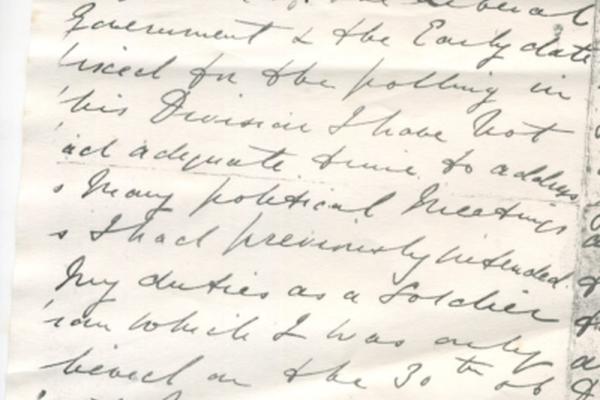 the Liberal
Government & the Early date
fixed for the polling in
this Division I have not
had adequate time to address
s many political Meetings
s I had previously intended.
My duties as a Soldier
from which I was only
lieved on the 30th of